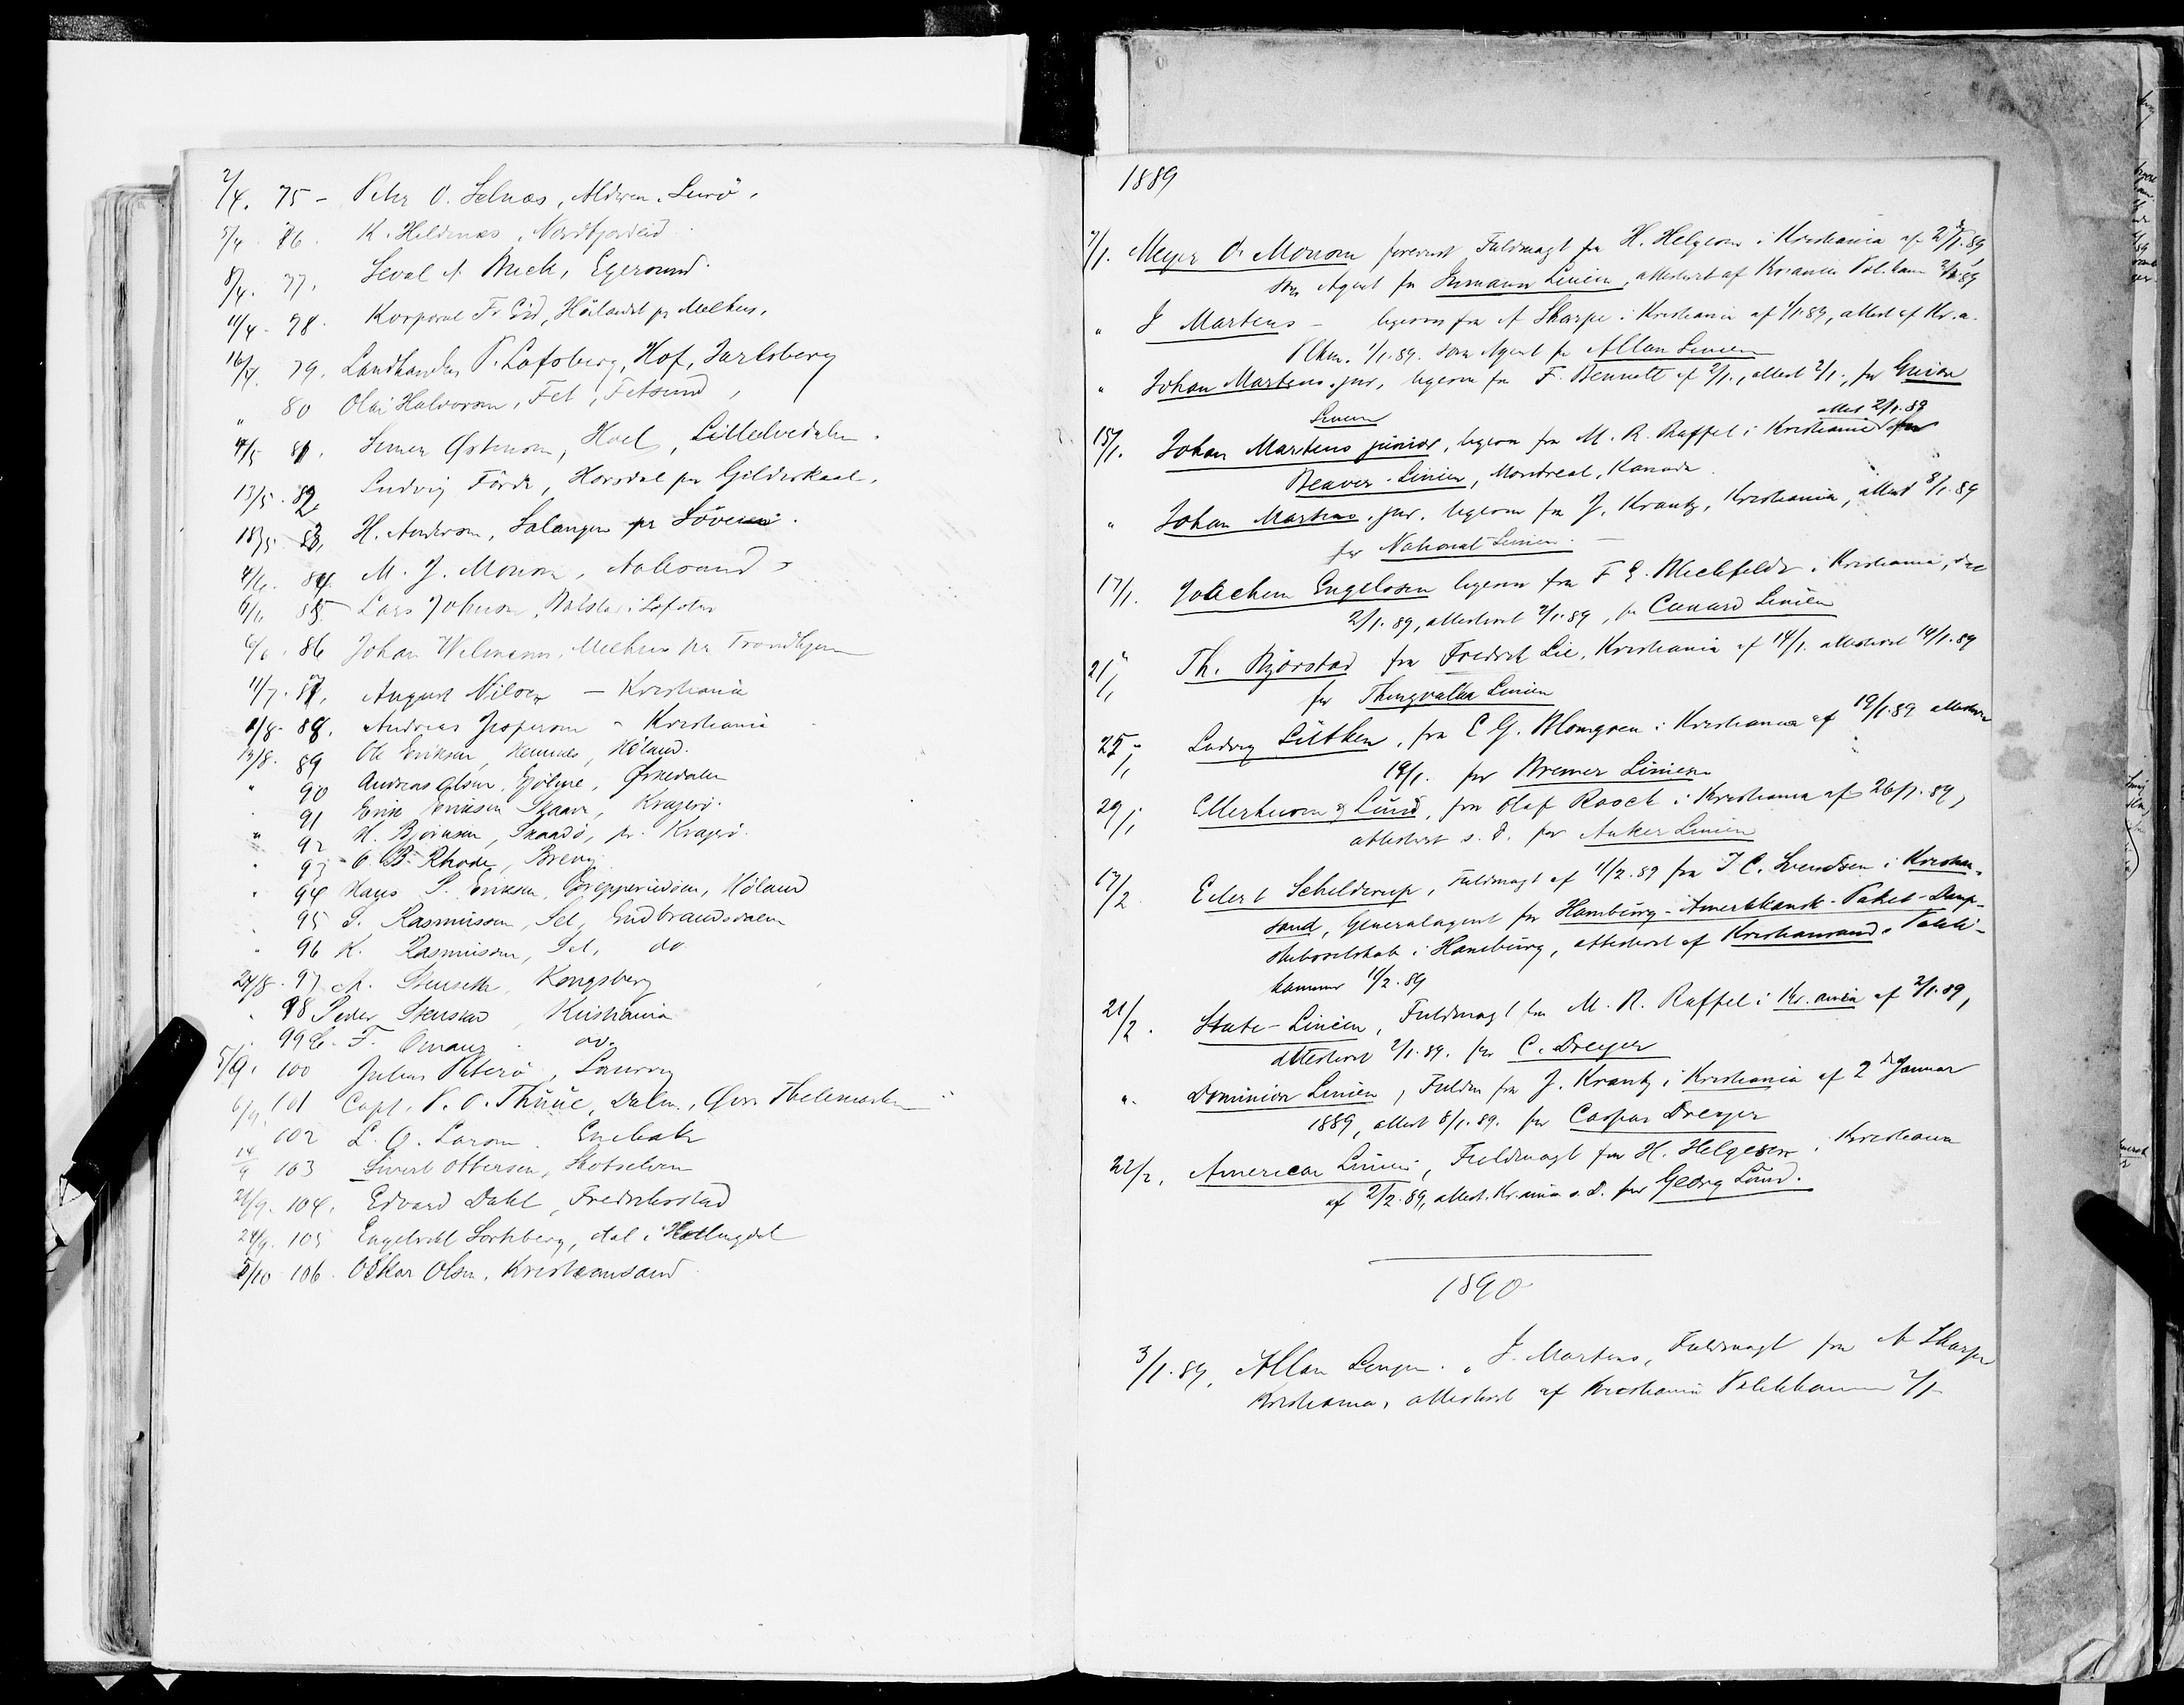 2/4. 75 - Peter O. Selnæs, Alderen, Lurö.
5/4. 86. K. Hildenæs, Nordfjordeid.
8/4. 77. Seval A. Mick, Egersund.
11/4. 78. Korporal Fr. Eid, Hölandet pr Melhus.
16/4. 79. Landhandler P. Lofsberg, Hof, Jarlsberg
" 80 Olai Halvorsen, Fet, Fetsund,
4/5 81. Simen Østenson, Hoel, Lilleelvedalen.
13/5. 82. Ludvig Förde, Horsdal pr Gilderskaal.
18/5. 83. H. Anderson, Salangen pr
4/6. 84. M. J. Monson, Aalesund
6/6 85 Lars Johnson, Balstad i Lofoten
6/6. 86 Johan Welmann, Melhus pr Trondhjem
11/7. 87. August Nilsen - Kristiania
2/8. 88. Andreas Jespersen - Kristiania
13/8. 89 Ole Eriksen, Hemnes, Höland.
" 90 Andreas Olsen, Gjölme, Ørkedalen
91 Erik Eriksen Skaare, Kragerö.
" 92 H. Björnsen, Skaadö, pr. Kragerö.
" 93 - O. B. Rhode, Brevig
" 94 Hans P. Eriksen, Höland
95 S. Rasmussen, Sel, Gudbrandsdalen
" 96 K. Rasmussen, Sel, do
24/8. 97 A. Stenseth, Kongsberg
" 98 Peder Stenstad, Kristiania
99 E. F. Omang. do.
5/9. 100 Julius Peterö, Laurvig
6/9. 101 Capt. P. O. Thune, Dalen, Øvre Thelemarken
102 L. O. Larsen. Enebak
14/9 103 Sivert Ottersen, Skotselven
21/9. 104. Edvard Dahl, Fredrikstad
24/9. 105 Engebret Sorteberg, Aal i Hallingdal
5/10 106. Oskar Olsen, Kristiansand
1889
7/1. Meyer O. Monson forevist Fuldmagt fra H. Helgesen i Kristiania af 2/1.89
som Agent for Inmann Linien, attesteret af Krianias Polikam 2/1.89
" J Martens - ligesom fra A Sharpe i Kristiania af 1/1.89, attest af Kr.a.
Plkm. 1/1.89. som Agent for Allan Linien
" Johan Martens jnr, ligesom fra F. Bennett af 2/1., attest 2/1., for Guion
Linien
15/1. Johan Martens junior, ligesom fra M. R. Raffel i Kristiania attest 2/1.89 for
Beaver-Linien, Montreal, Kanada.
" Johan Martens, jnr. ligesom fra J. Krantz, Kristiania, attest 8/1.89
for National-Linien. -
17/1. Joachem Engelssen ligesom fra F E. Melchfeldt i Kristiania,
2/1.89, attesteret 2/1.89, for Cunard Linien
21/1 Th. Björstad fra Fredrik Lie, Kristiania af 14/1. attesteret 14/1.89
for Thingvalla Linien
25/1 Ludvig Lütken, fra C G. Blomgren i Kristiania af 19/1.89 attesteret
19/1. for Bremer Linien
29/1 Ellertuson & Lund, fra Olaf Roock i Kristiania af 26/1.89,
attesteret s. D. for Anker Linien
12/2 Eilert Schelderup, Fuldmagt af 11/2.89 fra J C. Svendsen i Kristian-
sand, Generalagent for Hamburg-Amerikansk-Paket-Damp-
skibsselskab i Hamburg, attesteret af Kristiansands Politi-
kammer 11/2.89
21/2. State-Linien, Fuldmagt fra M. R. Raffel i Kr.ania af 2/1.89,
attesteret 2/1.89. for C. Dreyer
". Dominion Linien, Fuldm fra J. Krantz i Kristiania af 2 Januar
1889, attest 8/1.89. for Caspar Dreyer
22/2, American Linien, Fuldmagt fra H. Helgesen i Kristiania
af 2/2.89, attest. Kr.ania s. D. for Georg Lund.
1890
3/1.89, Allan Linjen. J. Martens, Fuldmagt fra A Sharpe
Kristiania, attesteret af Kristiania Politikammer 2/1